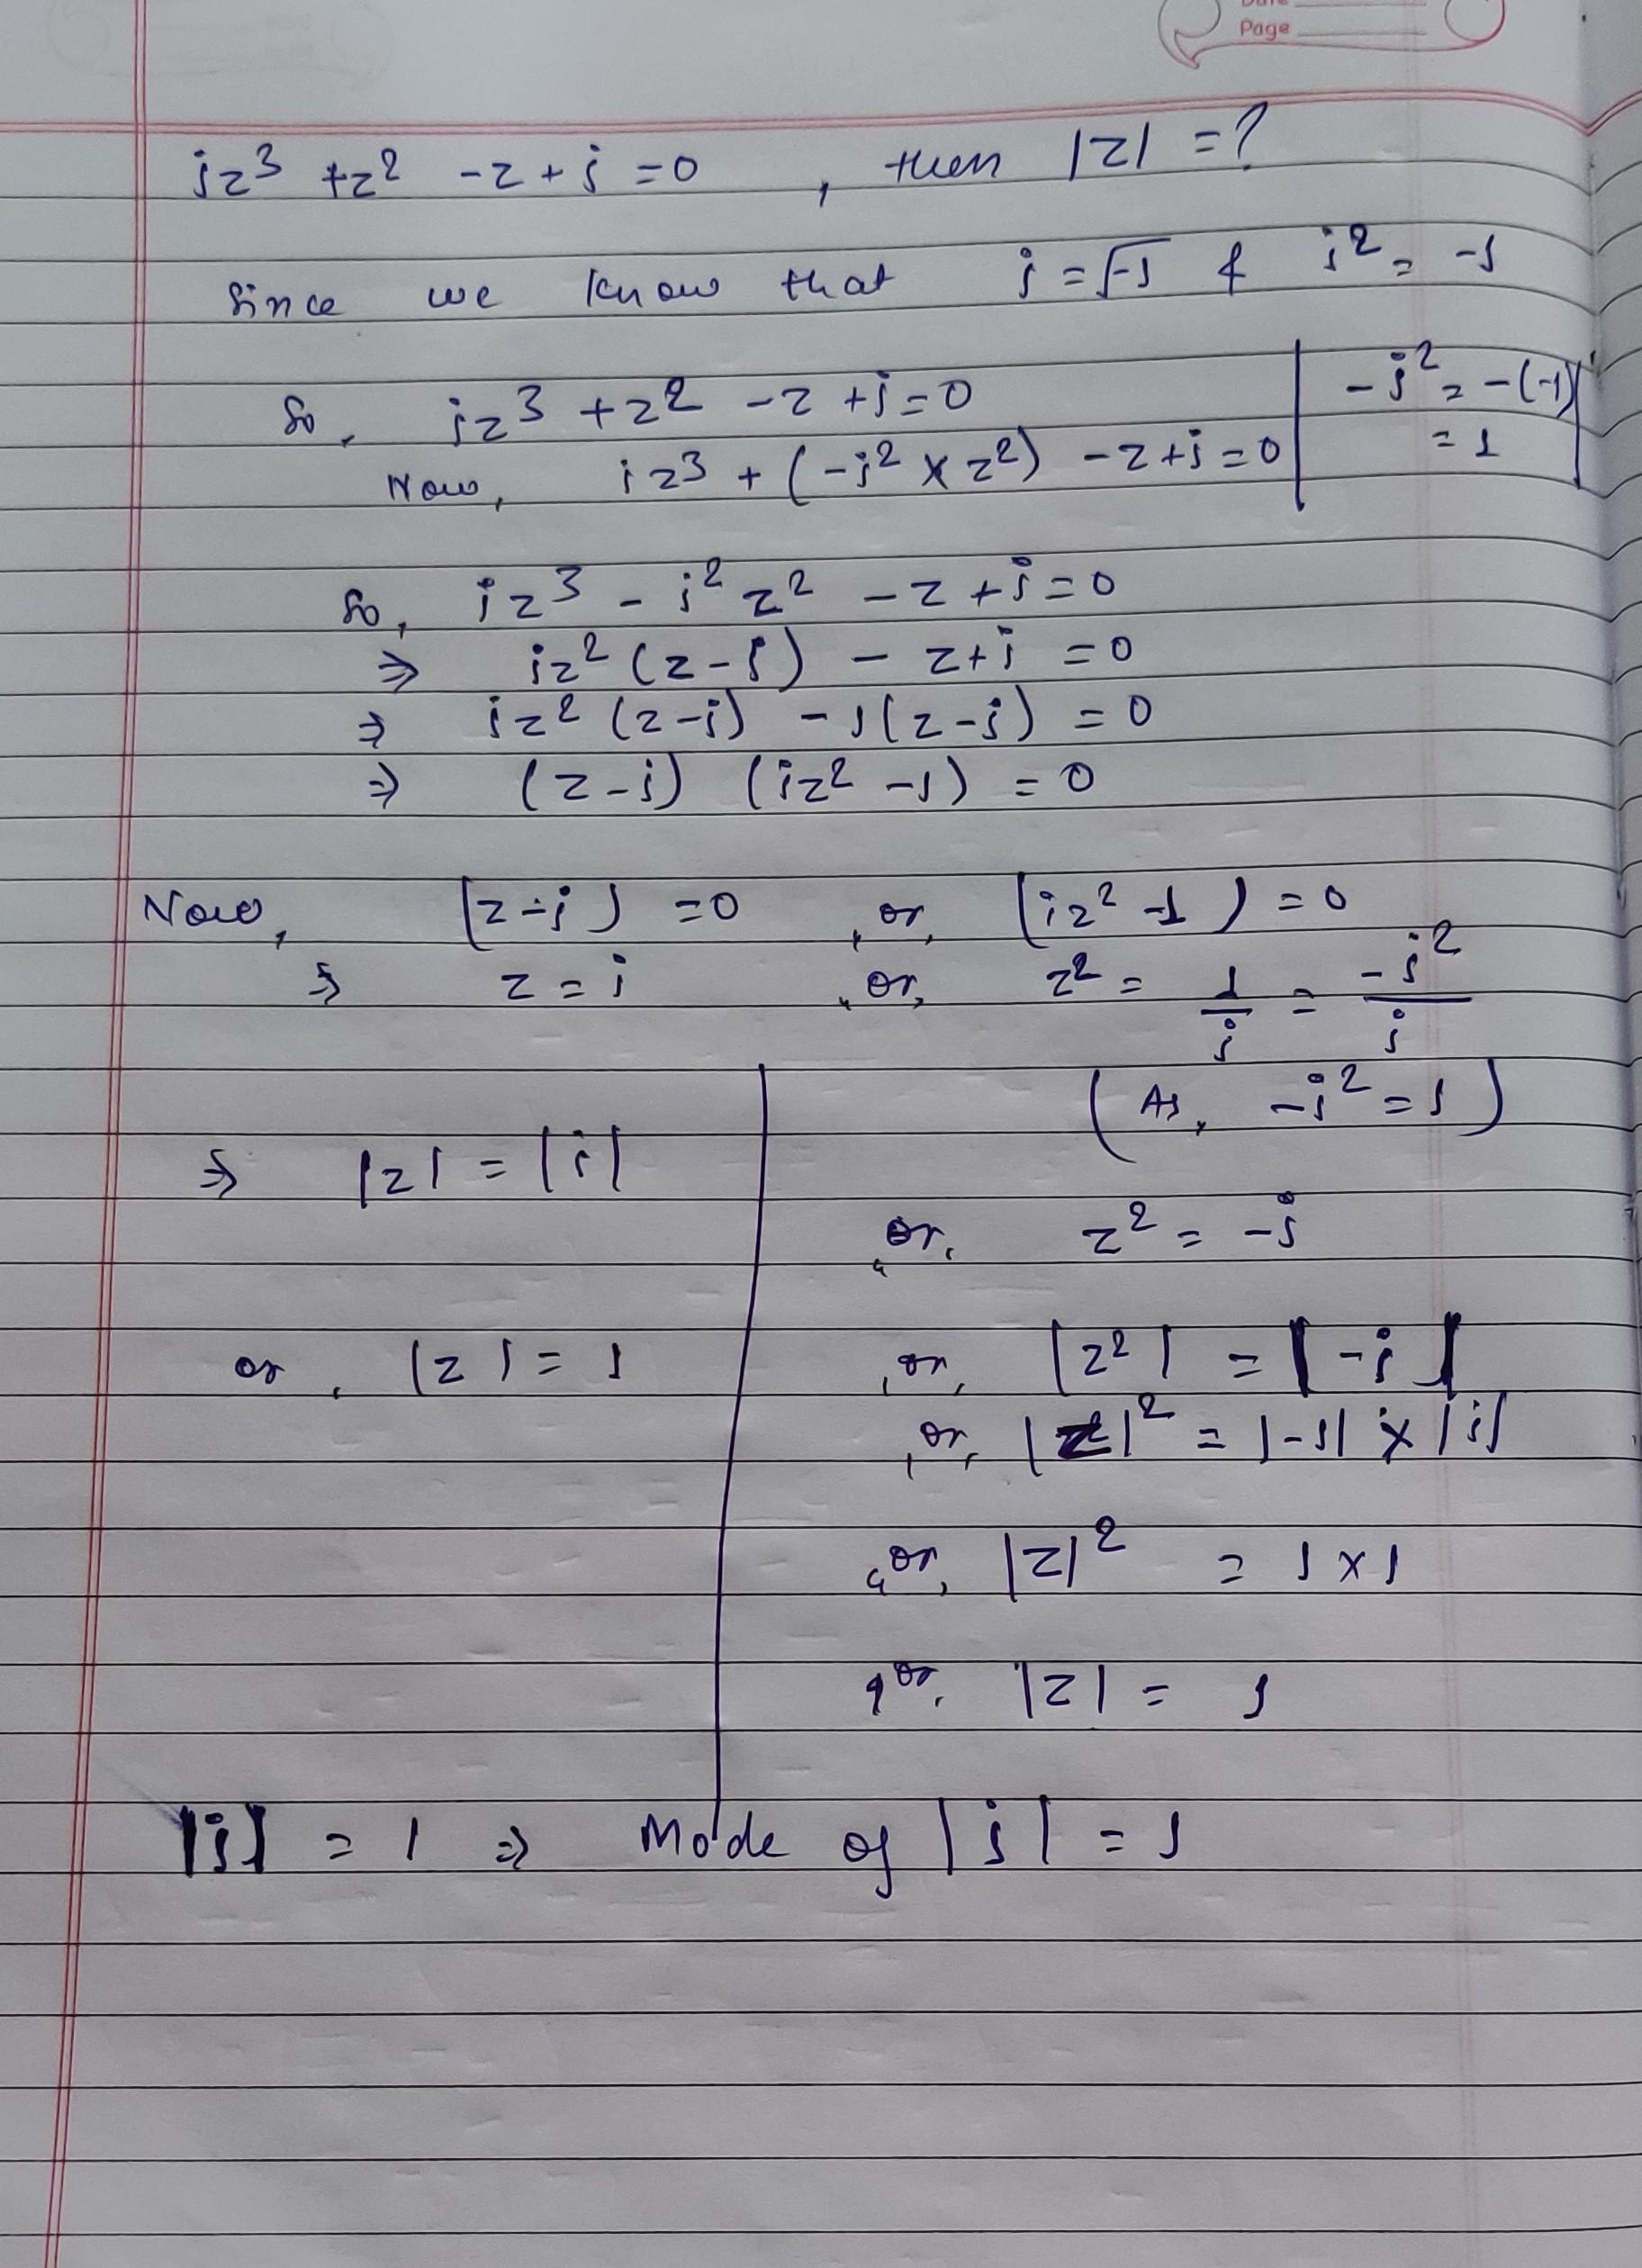 Date
Page
iz³ +z² -z+i =0 , then |z| =?
Since we know that i =√-1 & i² = -1
So, iz³ +z² -z +i=0 | -i² = -(-1)
Now, iz³ + (-i² × z²) -z+i=0 | = 1
So, iz³ - i² z² - z +i=0
⇒ iz² (z-i) - z+i =0
⇒ iz² (z-i) -1(z-i) =0
⇒ (z-i) (iz² -1) =0
Now, (z-i) =0 , or, (iz² -1) =0
⇒ z=i , or, z² = 1/i = -i²/i
(As, -i² =1)
⇒ |z| = |i|
, or, z² = -i
or , |z| = 1 , or, |z²| = |-i|
, or, |z|² = |-1| × |i|
, or, |z|² = 1×1
, or, |z| = 1
|i| = 1 ⇒ Mode of |i| = 1